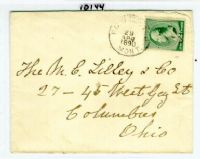 10144
29
1890
MONT.
The M. C. Lilley & Co
27-45 West Gay St
Columbus
Ohio